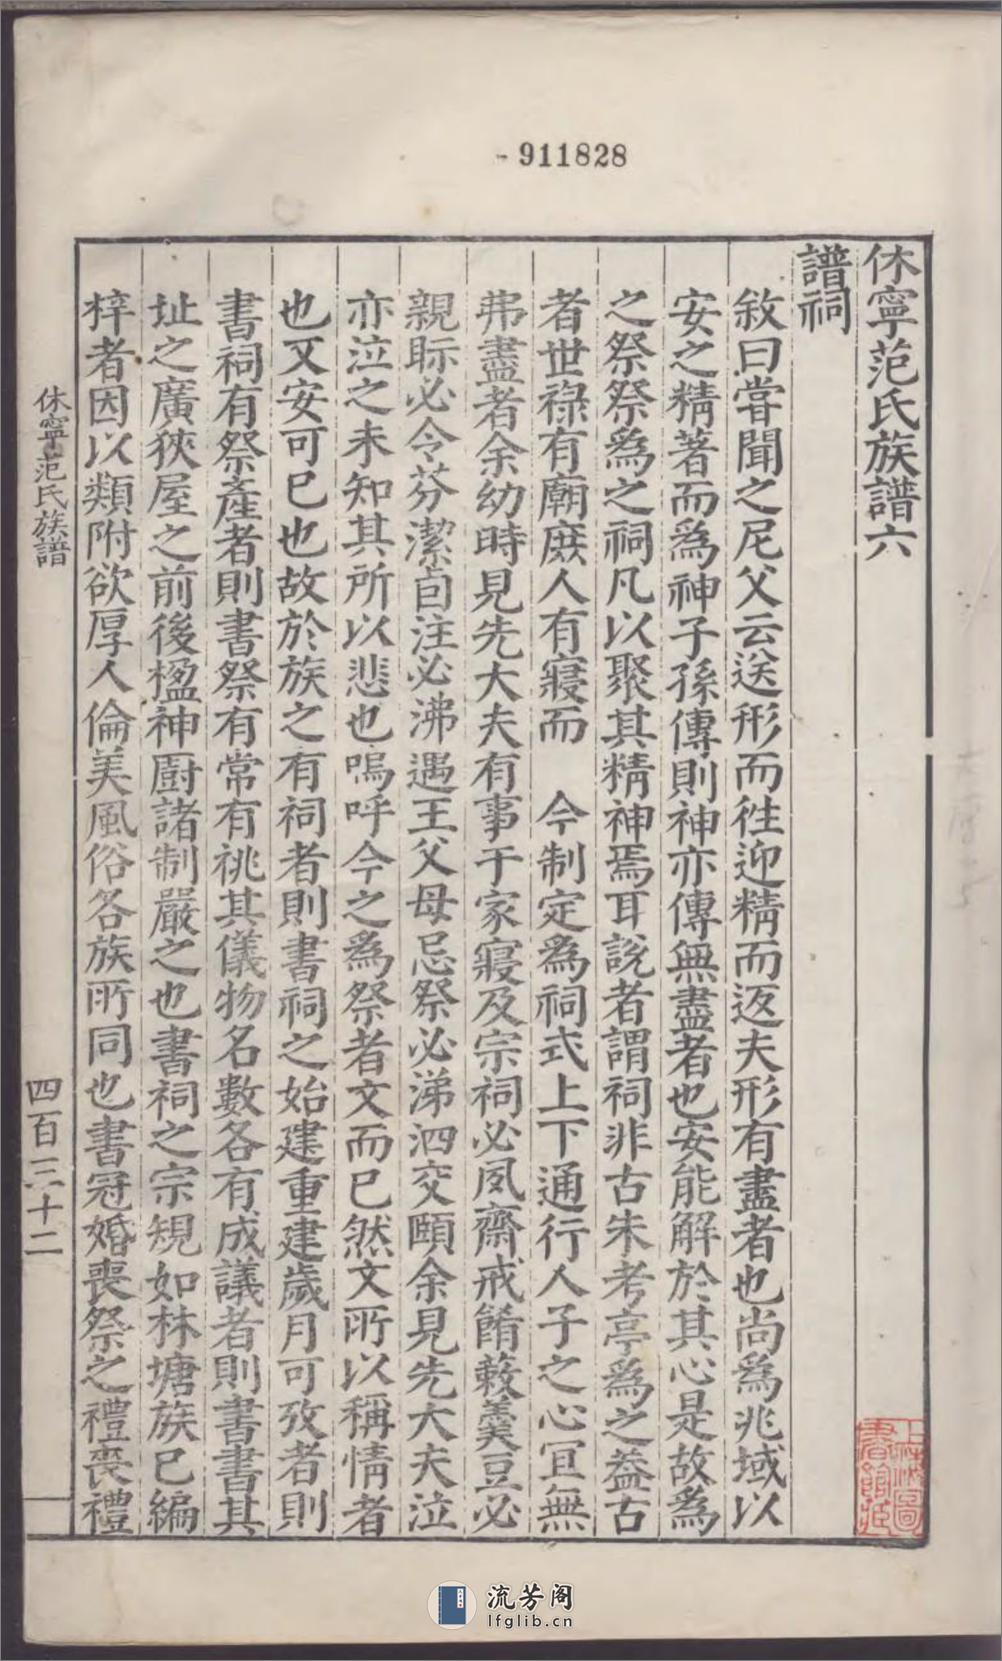 911828
休寧范氏族譜六
譜祠
敘曰甞聞之尼父云送形而徃迎精而返夫形有盡者也尚為兆域以
安之精著而為神子孫傳則神亦傳無盡者也安能解於其心是故為
之祭祭為之祠凡以聚其精神焉耳說者謂祠非古朱考亭為之葢古
者世祿有廟庶人有寢而　今制定為祠式上下通行人子之心冝無
弗盡者余幼時見先大夫有事于家寢及宗祠必夙齋戒餚蔌羹豆必
親眎必令芬潔卣注必沸遇王父母忌祭必涕泗交頤余見先大夫泣
亦泣之未知其所以悲也嗚呼今之為祭者文而已然文所以稱情者
也又安可已也故於族之有祠者則書祠之始建重建歲月可攷者則
書祠有祭產者則書祭有常有祧其儀物名數各有成議者則書書其
址之廣狹屋之前後楹神廚諸制嚴之也書祠之宗規如林塘族已編
梓者因以類附欲厚人倫美風俗各族所同也書冠婚喪祭之禮喪禮
休寧范氏族譜
四百六十二
上海圖書館藏
流芳阁
lfglib.cn